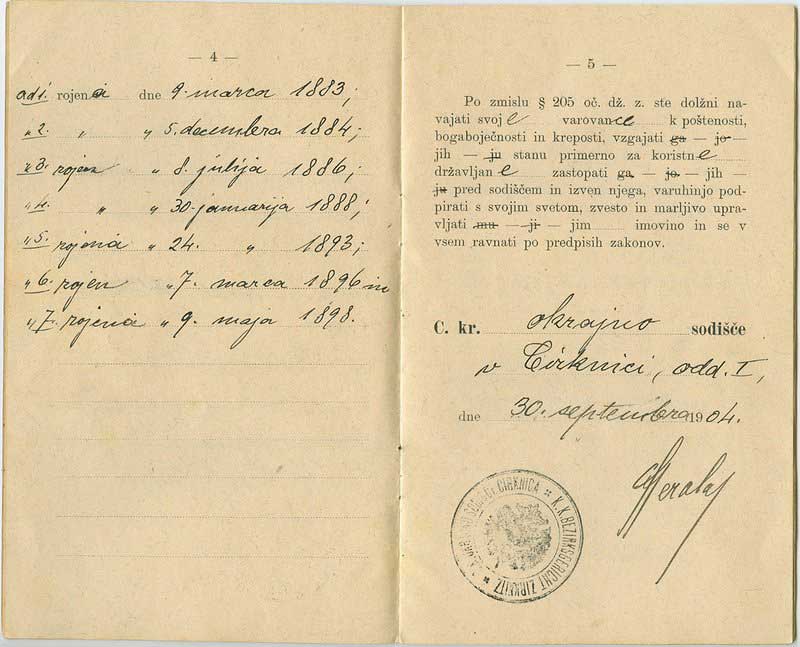 — 4 —
ad 1. rojena dne 9. marca 1883;
„ 2. „ „ 5. decembra 1884;
„ 3. rojen „ 8. julija 1886;
„ 4. „ „ 30. januarija 1888;
„ 5. rojena „ 24. „ 1893;
„ 6. rojen „ 7. marca 1896 in
„ 7. rojena „ 9. maja 1898.
— 5 —
Po zmislu § 205 oč. dž. z. ste dolžni na-
vajati svoje varovance k poštenosti,
bogaboječnosti in kreposti, vzgajati ga — jo —
jih — ju stanu primerno za koristne
državljane zastopati ga — jo — jih —
ju pred sodiščem in izven njega, varuhinjo pod-
pirati s svojim svetom, zvesto in marljivo upra-
vljati mu — ji — jim imovino in se v
vsem ravnati po predpisih zakonov.
C. kr. okrajno sodišče
v Cirknici, odd. I,
dne 30. septembra 1904.
CIRKNICA * K.K. BEZIRKSGERICHT ZIRKNITZ *